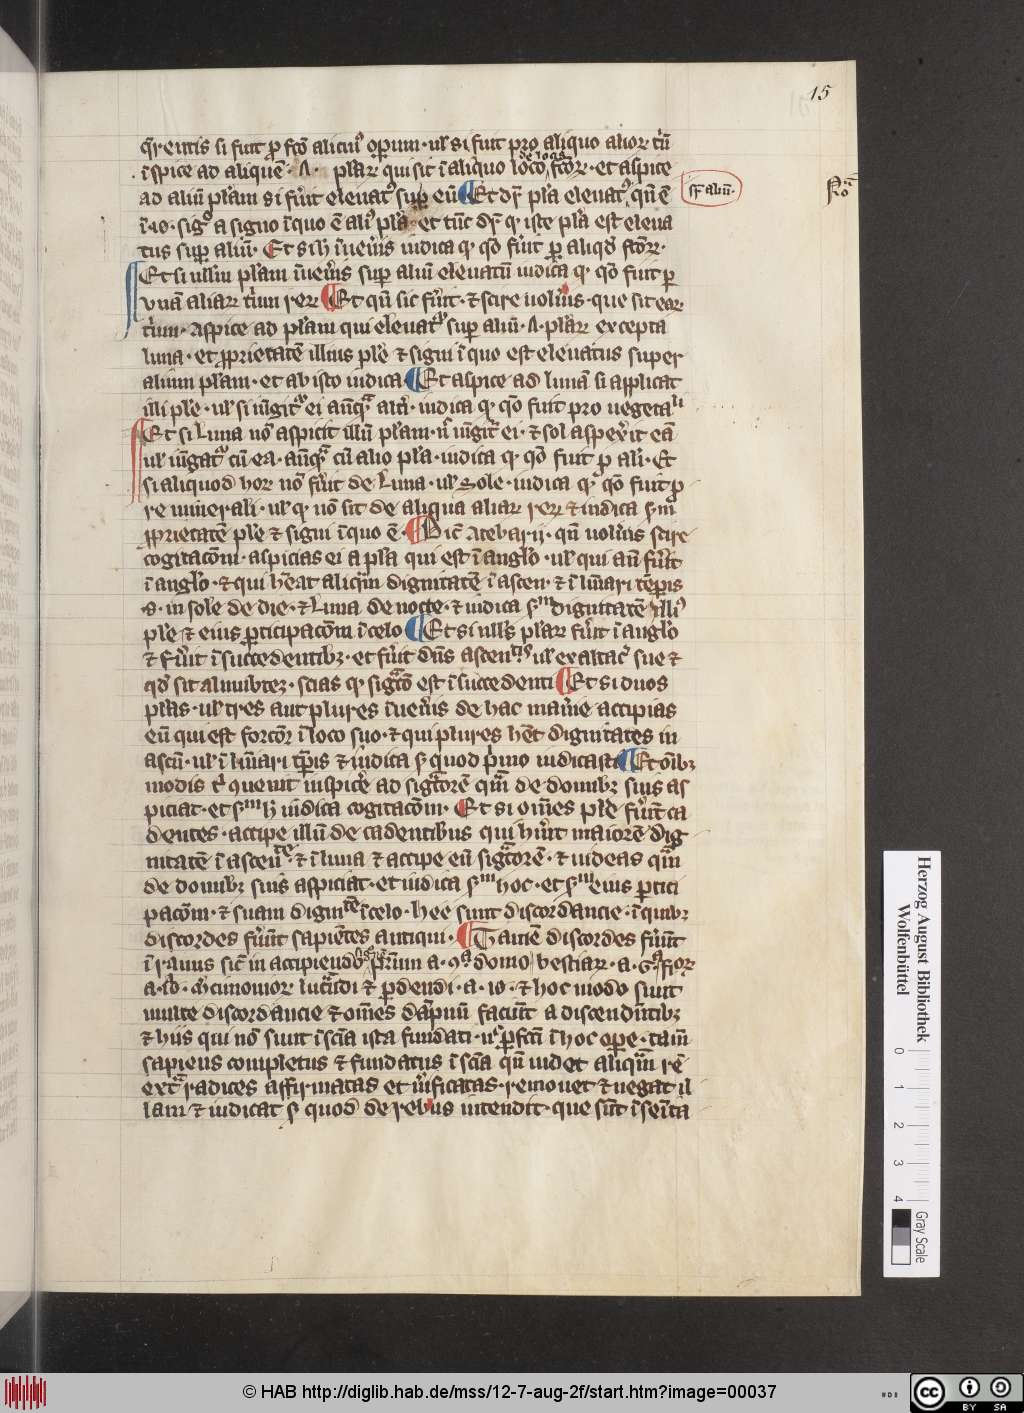 15
q̄rentis si fuit ꝓ fcō alicui⁹ oꝑum · ul' si fuit pro aliquo alior̄ tr̄ū
īspice ad aliquē · Λ · plar̄ qui sit ī aliquo loco fcōr̄ · et aspice
de locis
ad aliū plāam si fūit eleuat⁹ suꝑ eū Et dr̄ pla eleuat⁹ qn̄ ē
sr̄ aliū ·
ī · 10 · sig̊ a signo īquo ē ali⁹ plā · et tūc dr̄ qꝫ iste plā est eleua
tus suꝑ aliū · Et si ħ īueṅis iudica qꝫ qō fūit ꝑ aliqō fcōr̄ ·
Et si ulliu plāam īueṅis suꝑ aliū eleuatū iudica qꝫ qō fuit ꝑ
vnā aliar̄ triū rer̄ Et qn̄ sic fūit · ⁊ scire uolūis · que sit ear̄
triū · Aspice ad plāam qui eleuat⁹ suꝑ aliū · Λ · plar̄ excepta
luna · et ꝓprietatē illius plē ⁊ signi ī quo est eleuatus super
alium plāam · et ab isto iudica · Et aspice ad lunā si applicat
illi plē · ul' si iūgit⁹ ei · iudica qꝫ qō fuit pro uegetaˡⁱ
Et si Luna nō aspicit illū plāam · n̄ iūgit̄ ei · ⁊ sol aspex̄it eā
ul' iūgat⁹ cū ea · cū alio pla · iudica qꝫ qō fuit ꝑ ali · Et
si aliquod hor̄ nō fūit de Luna · ul' Sole · iudica qꝫ qō fuit ꝓ
re minerali · ul' qꝫ nō sit de aliqua aliar̄ rer̄ ⁊ iudica ẜm
ꝓprietatē plē ⁊ signi īquo ē · Dic̄ Atebarij · qn̄ uolūis scire
cogitacōm · aspicias ei a pla qui est ī anglō · ul' qui an̄ fūit
ī anglō · ⁊ qui hēat aliqm̄ dignitatē ī ascen · ⁊ ī lūari tēpis
·s· in sole de die · ⁊ Luna de nocte · ⁊ iudica ẜm dignitatē illi⁹
plē ⁊ eius ꝑticipacōm ī celo Et si ullˢ plar̄ fūit ī anglō
⁊ fūit ī succedentibꝫ · et fūit dn̄s ascenᵗⁱˢ ul' exaltac̄ sue ⁊
qd̄ sit almubtez · scias qꝫ sigcō est ī succedenti Et si duos
plas · ul' tres aut plures īueṅis de hac maṅie accipias
eū qui est forcōr̄ ī loco suo · ⁊ qui plures hēt dignitates in
ascn̄ · ul' ī lūari tp̄is ⁊ iudica ẜ quod pͥmo iudicasti Et oīb⁊
modis inspicē ad sigtorē qm̄ de domibꝫ suis as
piciat · et ẜm ħ iudica cogitacōm · Et si om̄es plē fūīt ca
dentes · accipe illū de cadentibus qui hn̄t maiorē dig
nitatē ī ascenᵗᵉ · ⁊ ī luna ⁊ accipe eū sigtorē · ⁊ uideas qm̄
de domibꝫ suis aspiciat · et iudica ẜm hoc · et ẜm eius ꝑtici
pacōm · ⁊ suam digniᵗᵉ ī celo · hee sunt discordancie · ī quibꝫ
discordes fūnt sapiētes antiqui · Tamē discordes fūnt
ī ranus sic̄ in accipiendo pͥmm a · 9ᵃ domo bestiar̄ · a · 6ᵃ fior̄
a · 10 · lucrādi ⁊ ꝑdendi · a · 10 · ⁊ hoc modo sunt
multe discordancie ⁊ om̄es dāpnū faciūt a discendētibꝫ
⁊ hiis qui nō sunt ī scīa ista fundati · ul' ꝑfcti ī hoc oꝑe · tam̄
sapiens completus ⁊ fundatus ī scīa qn̄ uidet aliqm̄ rē
extͣ radices affirmatas et ūificatas · remouet ⁊ negat il
lam ⁊ iudicat ẜ quod de rebus intendit · que sūt ī seīta
Herzog August Bibliothek
Wolfenbüttel
0 1 2 3 4
Gray Scale
© HAB http://diglib.hab.de/mss/12-7-aug-2f/start.htm?image=00037
cc BY SA